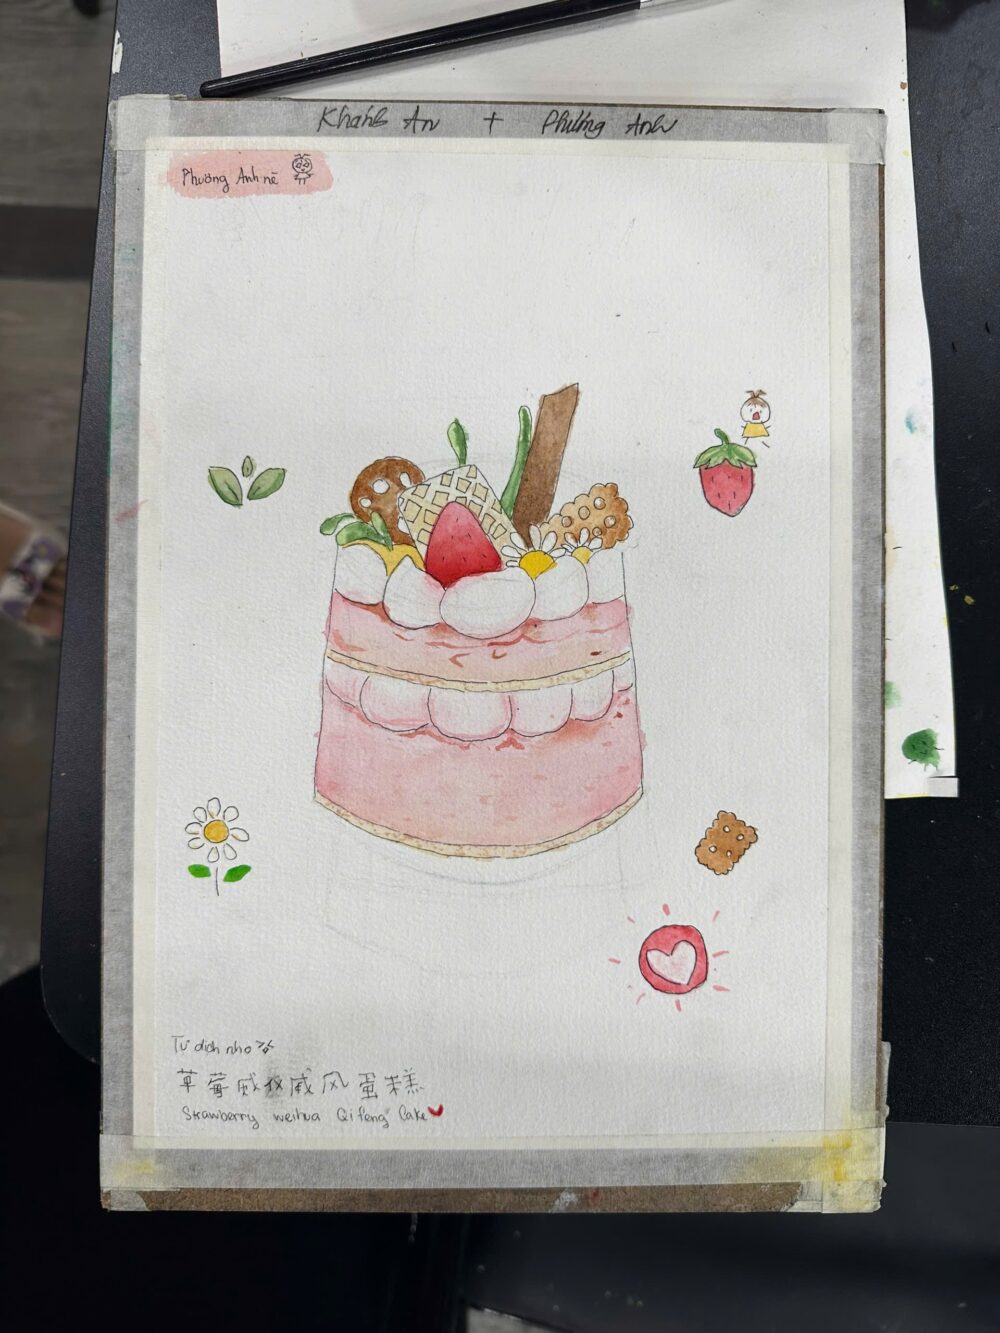 Khánh An + Phương Anh
Phương Anh nè
Tự dịch nho
草莓威化戚风蛋糕
Strawberry weihua Qifeng Cake